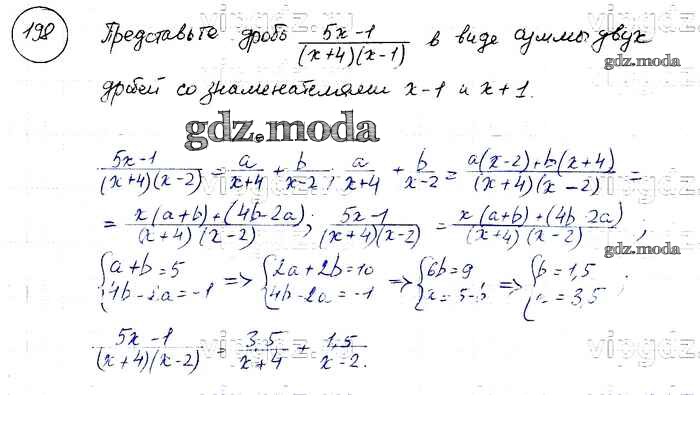 198 Представьте дробь (5x-1)/((x+4)(x-1)) в виде суммы двух
дробей со знаменателями x-1 и x+1.
gdz.moda
gdz.moda
(5x-1)/((x+4)(x-2)) = a/(x+4) + b/(x-2); a/(x+4) + b/(x-2) = (a(x-2)+b(x+4))/((x+4)(x-2)) =
= (x(a+b)+(4b-2a))/((x+4)(x-2)); (5x-1)/((x+4)(x-2)) = (x(a+b)+(4b-2a))/((x+4)(x-2));
gdz.moda
{a+b=5 => {2a+2b=10 => {6b=9 => {b=1,5
{4b-2a=-1 {4b-2a=-1 =3,5
(5x-1)/((x+4)(x-2)) = 3,5/(x+4) + 1,5/(x-2).